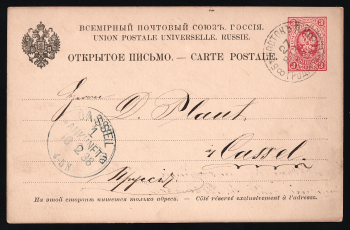 ВСЕМІРНЫЙ ПОЧТОВЫЙ СОЮЗЪ. РОССІЯ.
UNION POSTALE UNIVERSELLE. RUSSIE.
ОТКРЫТОЕ ПИСЬМО. — CARTE POSTALE.
3 3
Herrn D. Plaut,
Cassel.
CASSEL
1
2.98
На этой сторонѣ пишется только адресъ. — Côté réservé exclusivement à l'adresse.